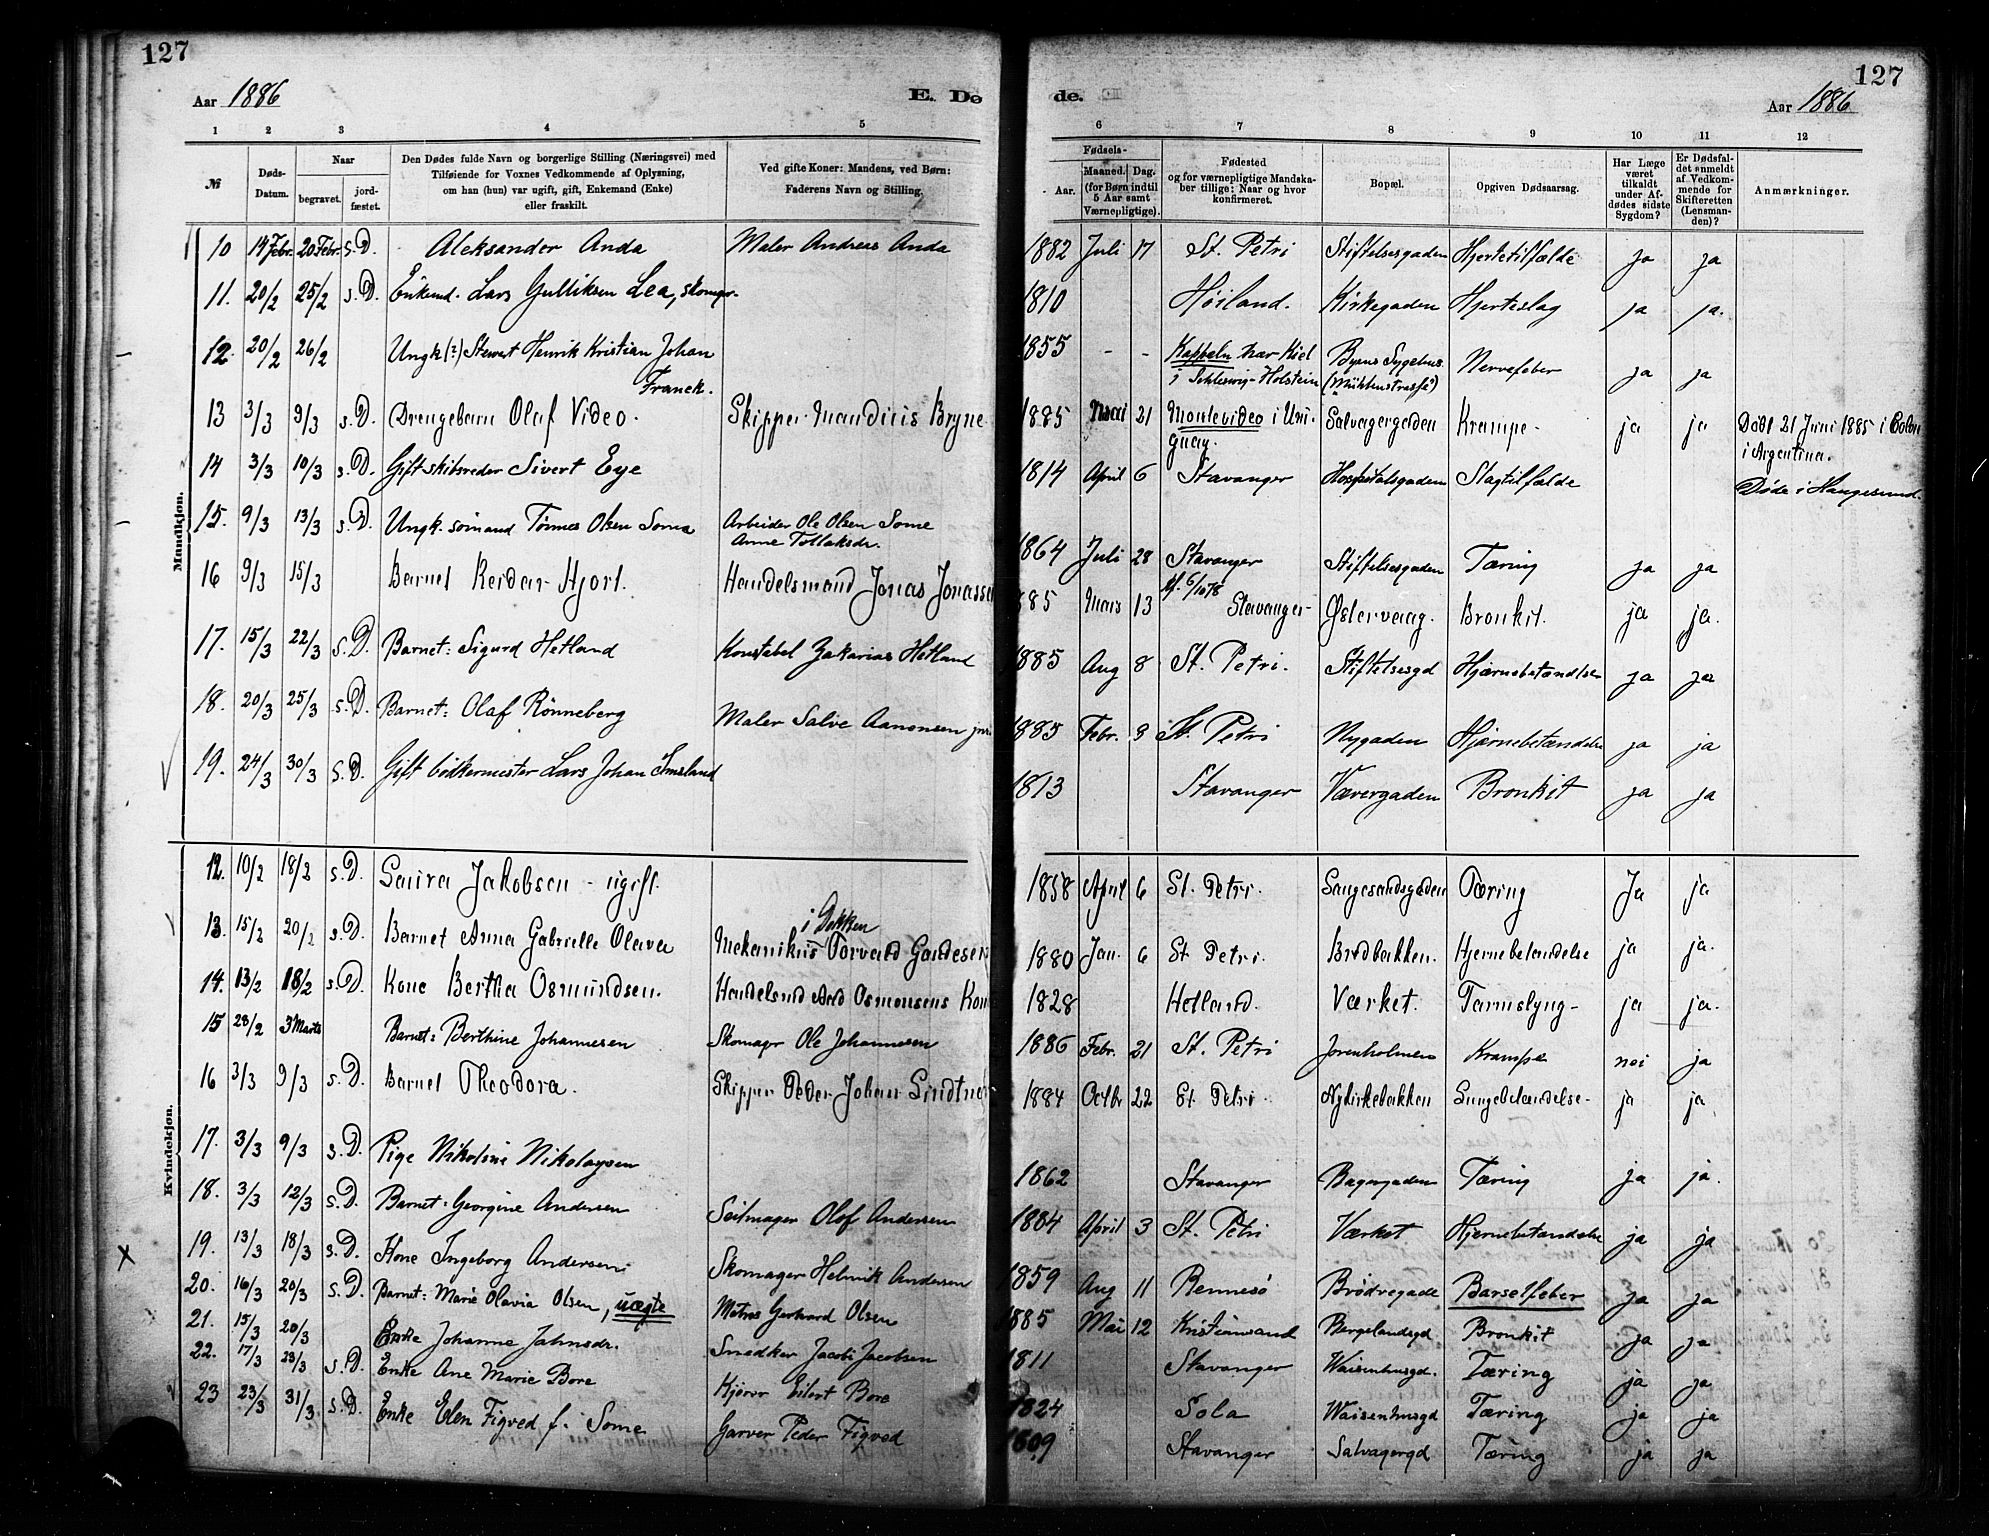 127
127
Aar 1886
E. Dø
de.
Aar 1886
1 2 3 4 5
6 7 8 9 10 11 12
№
Døds-
Datum.
Naar
begravet.
jord-
fæstet.
Den Dødes fulde Navn og borgerlige Stilling (Næringsvei) med
Tilføiende for Voxnes Vedkommende af Oplysning,
om han (hun) var ugift, gift, Enkemand (Enke)
eller fraskilt.
Ved gifte Koner: Mandens, ved Børn:
Faderens Navn og Stilling.
Fødsels-
Aar.
Maaned. Dag.
(for Børn indtil
5 Aar samt
Værnepligtige).
Fødested
og for værnepligtige Mandska-
ber tillige: Naar og hvor
konfirmeret.
Bopæl.
Opgiven Dødsaarsag.
Har Læge
været
tilkaldt
under Af-
dødes sidste
Sygdom?
Er Dødsfal-
det anmeldt
af Vedkom-
mende for
Skifteretten
(Lensman-
den)?
Anmærkninger.
Mandkjøn.
10 14 Febr. 20 Febr. s.D. Aleksander Anda Maler Andreas Anda 1882 Juli 17 St. Petri Stiftelsesgaden Hjertetilfælde ja ja
11. 20/2 25/2 s.D. Enkemd. Lars Gulliksen Lea, skomgr. 1810 Høiland. Kirkegaden Hjerteslag ja ja.
12. 20/2 26/2 Ungk (?) Stewert Henrik Kristian Johan
Franck. 1855 - - Kappeln nær Kiel
i Schleswig-Holstein Byens Sygehus
Nervefeber ja ja
13 3/3 9/3 s.D. Drengebarn Olaf Video. Skipper Mauditis Bryne 1885 Marti 21 Montevideo i Uru-
guay. Salvagergaden Krampe- ja ja Døbt 21 Juni 1885 i Colon
i Argentina.
14 3/3 10/3 s.D. Gift skibsreder Sivert Eye 1814 April 6 Stavanger Hospitalsgaden Slagtilfælde Døde i Haugesund.
15. 9/3 13/3 s.D. Ungk. sømand Tønnes Olsen Some Arbeider Ole Olsen Some
Anne Tollaksdr. 1864 Juli 28 Stavanger
6/10 78 Stiftelsesgaden Tæring ja ja
16 9/3 15/3 Barnet Reidar Hjort. Handelsmand Jonas Jonasse 885 Mars 13 Stavanger- Østervaag. Bronkit. ja ja.
17. 15/3 22/3 s.D. Barnet: Sigurd Hetland Konstabel Zakarias Hetland 1885 Aug 8 St. Petri. Stiftelsesgd Hjærnebetændelse ja ja
18. 20/3 25/3 s.D. Barnet: Olaf Rønneberg Maler Salve Aanensen jnr. 1885 Febr. 3 St. Petri Nygaden Hjærnebetændelse ja ja
19. 24/3 30/3 S.D. Gift bødkermester Lars Johan Imsland 1813 Stavanger Vævergaden Bronkit ja ja
Kvindekjøn.
12. 10/2 18/2 s.D. Laura Jakobsen - ugift. 1858 April 6 St. Petri. Langesandsgaden Tæring Ja ja
13. 15/2 20/2 s.D. Barnet Anna Gabrielle Olava i Dokken
Mekanikus Torvald Gaudesen 1880 Jan. 6 St. Petri. Bredbakken. Hjernebetændelse ja ja.
14. 13/2 18/2 s.D. Kone Bertha Osmundsen. Handelsmd Aad Osmonsens Kon 1828 Hetland. Værket. Tarmslyng- ja ja.
15 28/2 3 Marts Barnet: Berthine Johannesen Skomagr Ole Johannesen 1886 Febr. 21 St. Petri Jorenholmen Krampe nei ja
16 3/3 9/3 s.D. Barnet Theodora. Skipper Peder Johan Sindtne 1884 Octbr 22 St. Petri Nykirkebakken Lungebetændelse- ja ja.
17. 3/3 9/3 s.D. Pige Nikoline Nikolaysen 1862 Stavanger Bagergaden Tæring ja ja.
18. 3/3 12/3 s.D. Barnet: Georgine Andersen Seilmager Olof Andersen 1884 April 3 St. Petri Værket Hjernebetændelse ja ja
19. 13/3 18/3 s.D. Kone Ingeborg Andersen Skomager Helmik Andersen 1859 Aug 11 Rennesø Brødregade Barselfeber ja ja
20. 16/3 20/3 s.D. Barnet: Marie Olavia Olsen, uægte Matros Gerhard Olsen 1885 Mai 12 Kristiansand Bergelandsgd Bronkit ja ja
21. 15/3 20/3 Enke Johanne Jahnsdr. Snedker Jacob Jacobsen 1811 Stavanger Waisenhusgd. Tæring ja ja
22. 17/3 23/3 s.D. Enke Ane Marie Bore Kjører Eilert Bore 1824 Sola Waisenhusgd Tæring ja ja
23 23/3 31/3 s.D. Enke Elen Figved f. Some Garver Peder Figved 1809 Stavanger Salvagergd Tæring ja ja